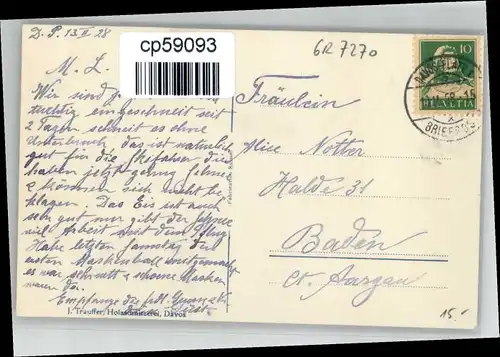 D. P. 13. II 28
cp59093
6R 7270
10
HELVETIA
M. L.
Wir sind
tüchtig eingeschneit seit
2 Tagen schneit es ohne
Unterbruch, das ist natürlich
gut für die Skifahrer die
haben jetzt genug Schnee
& können sich nicht be-
klagen. Das Eis ist auch
sehr gut nur gibt der Schnee
viel Arbeit mit dem
Habe letzten Samstag den
ersten Maskenball mitgemacht
es war schneidig & schöne Masken
waren da.
Empfange die frdl.
Fräulein
Alice Notter
Halde 31
Baden
Ct. Aargau
J. Trauffer, Holzschnitzerei, Davos
15.-